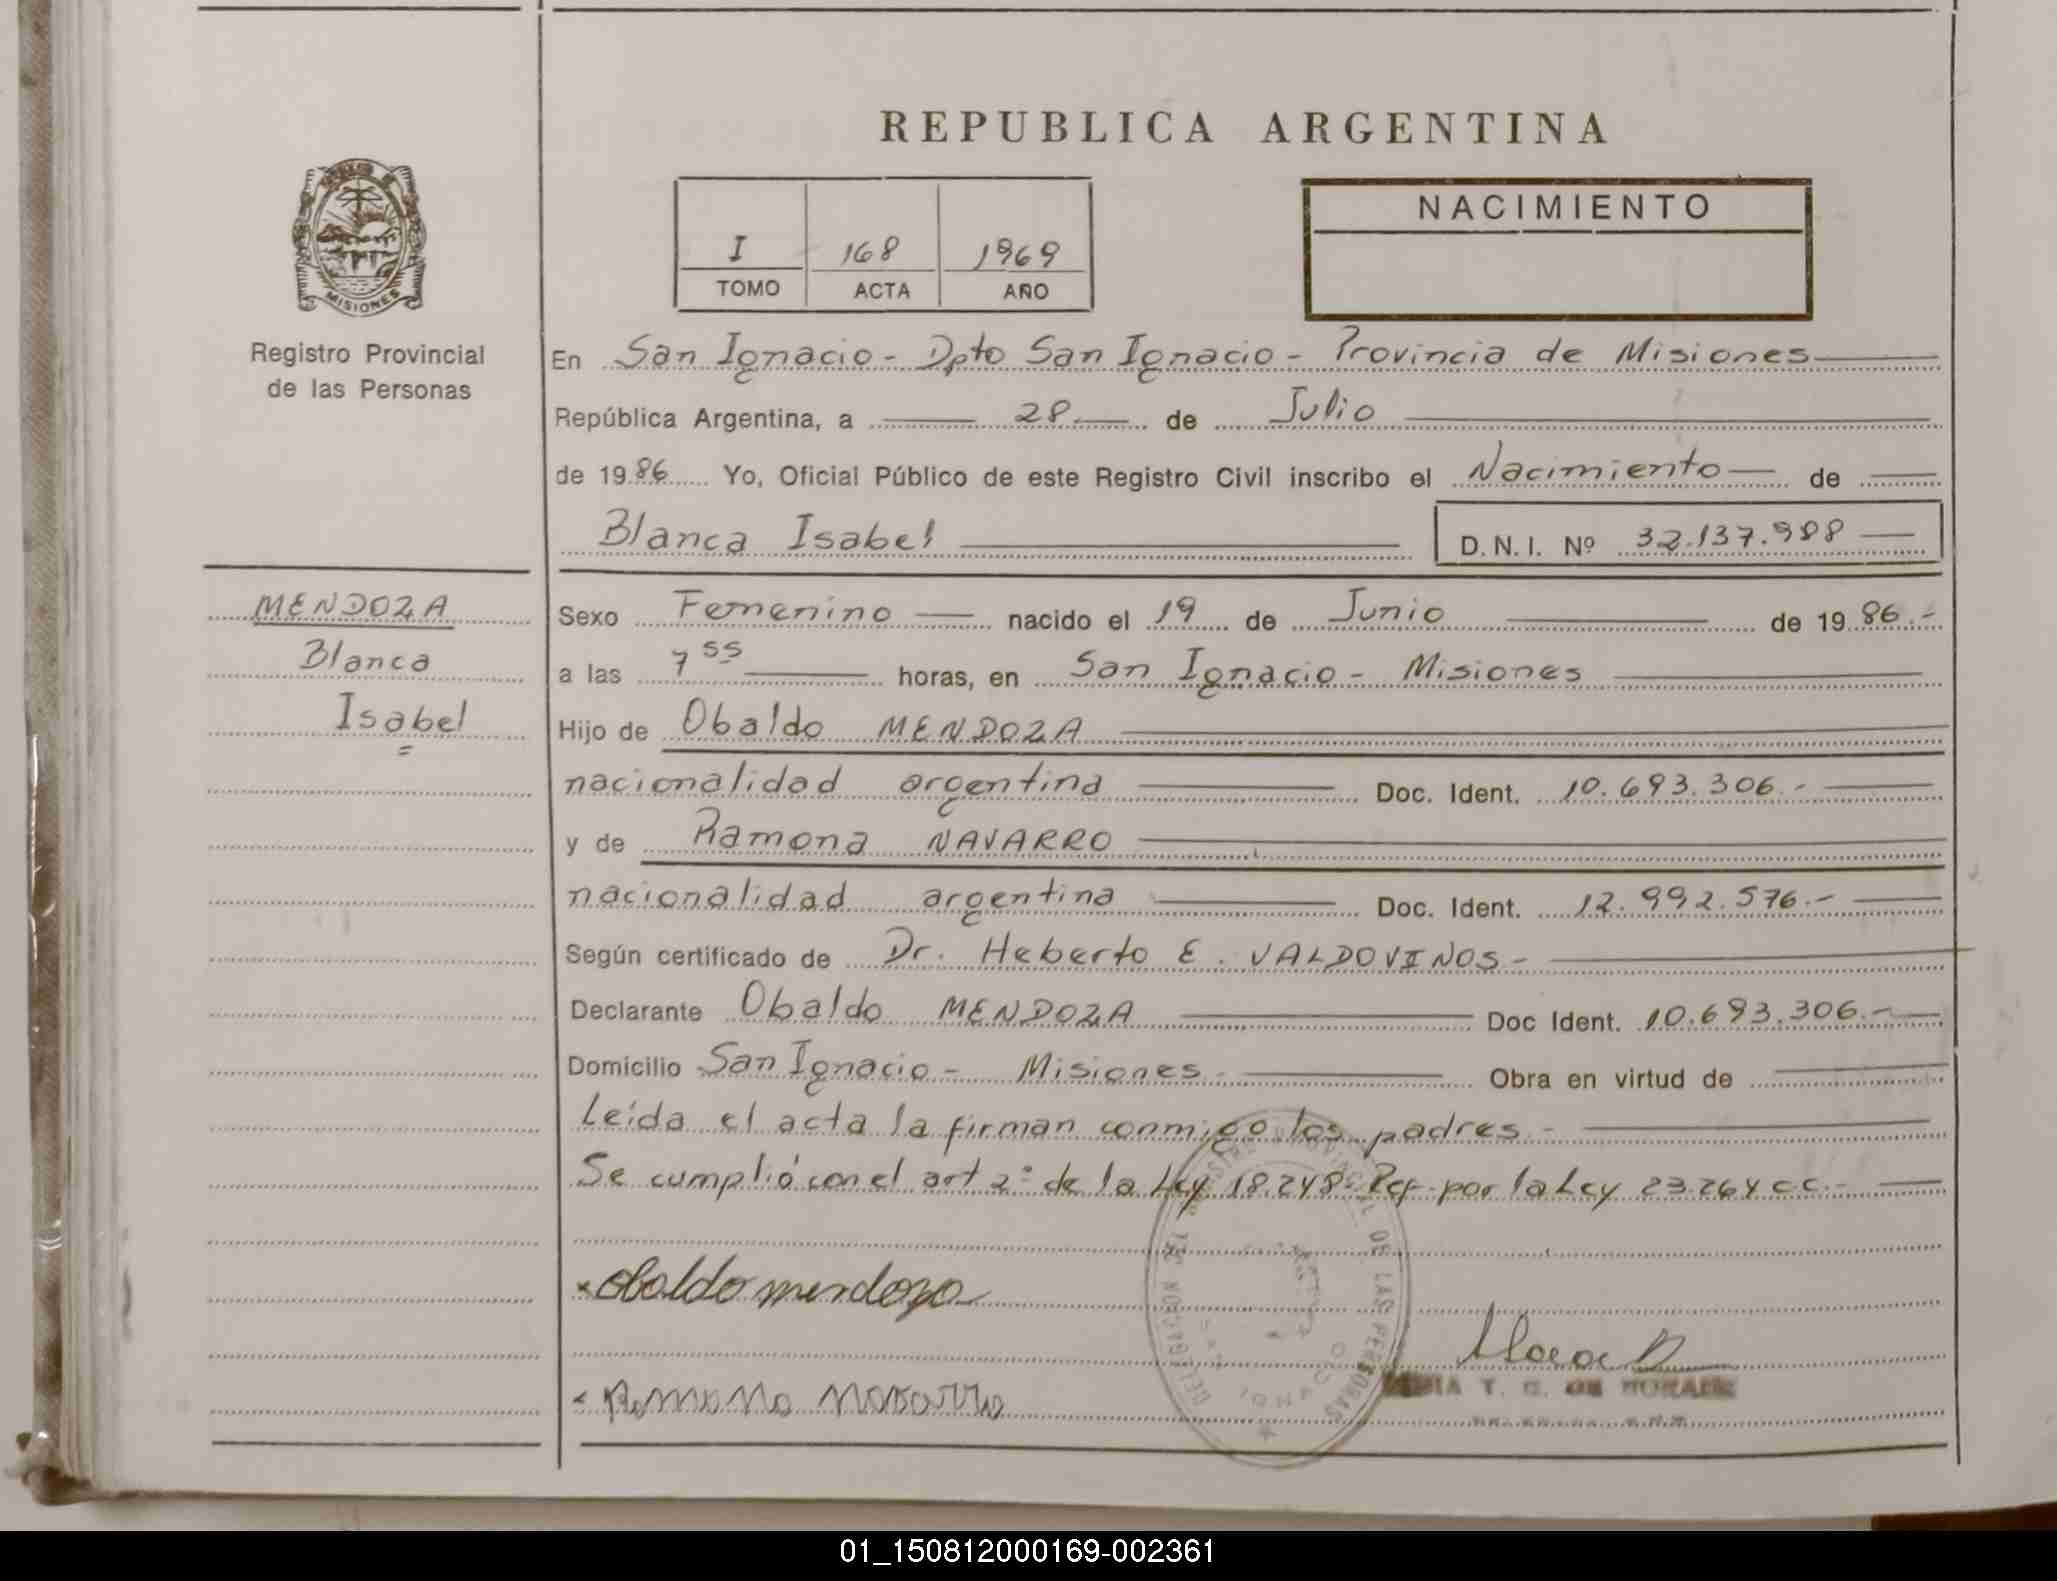 REPUBLICA ARGENTINA
NACIMIENTO
I 168 1969
TOMO ACTA AÑO
MISIONES
Registro Provincial
de las Personas
En San Ignacio - Dpto San Ignacio - Provincia de Misiones
República Argentina, a 28 de Julio
de 1986 Yo, Oficial Público de este Registro Civil inscribo el Nacimiento de
Blanca Isabel D.N.I. Nº 32.137.988
MENDOZA
Blanca
Isabel
Sexo Femenino nacido el 19 de Junio de 1986.-
a las 7 55 horas, en San Ignacio - Misiones
Hijo de Obaldo MENDOZA
nacionalidad argentina Doc. Ident. 10.693.306.-
y de Ramona NAVARRO
nacionalidad argentina Doc. Ident. 12.992.576.-
Según certificado de Dr. Heberto E. VALDOVINOS -
Declarante Obaldo MENDOZA Doc Ident. 10.693.306.-
Domicilio San Ignacio - Misiones - Obra en virtud de
Leída el acta la firman conmigo los padres -
Se cumplió con el art 2º de la Ley 18.248 Ref por la Ley 23.264 c.c.-
Obaldo mendoza
Ramona Navarro
DELEGACION REGISTRO PROVINCIAL DE LAS PERSONAS
SAN IGNACIO
T. G. DE MORALES
01_150812000169-002361